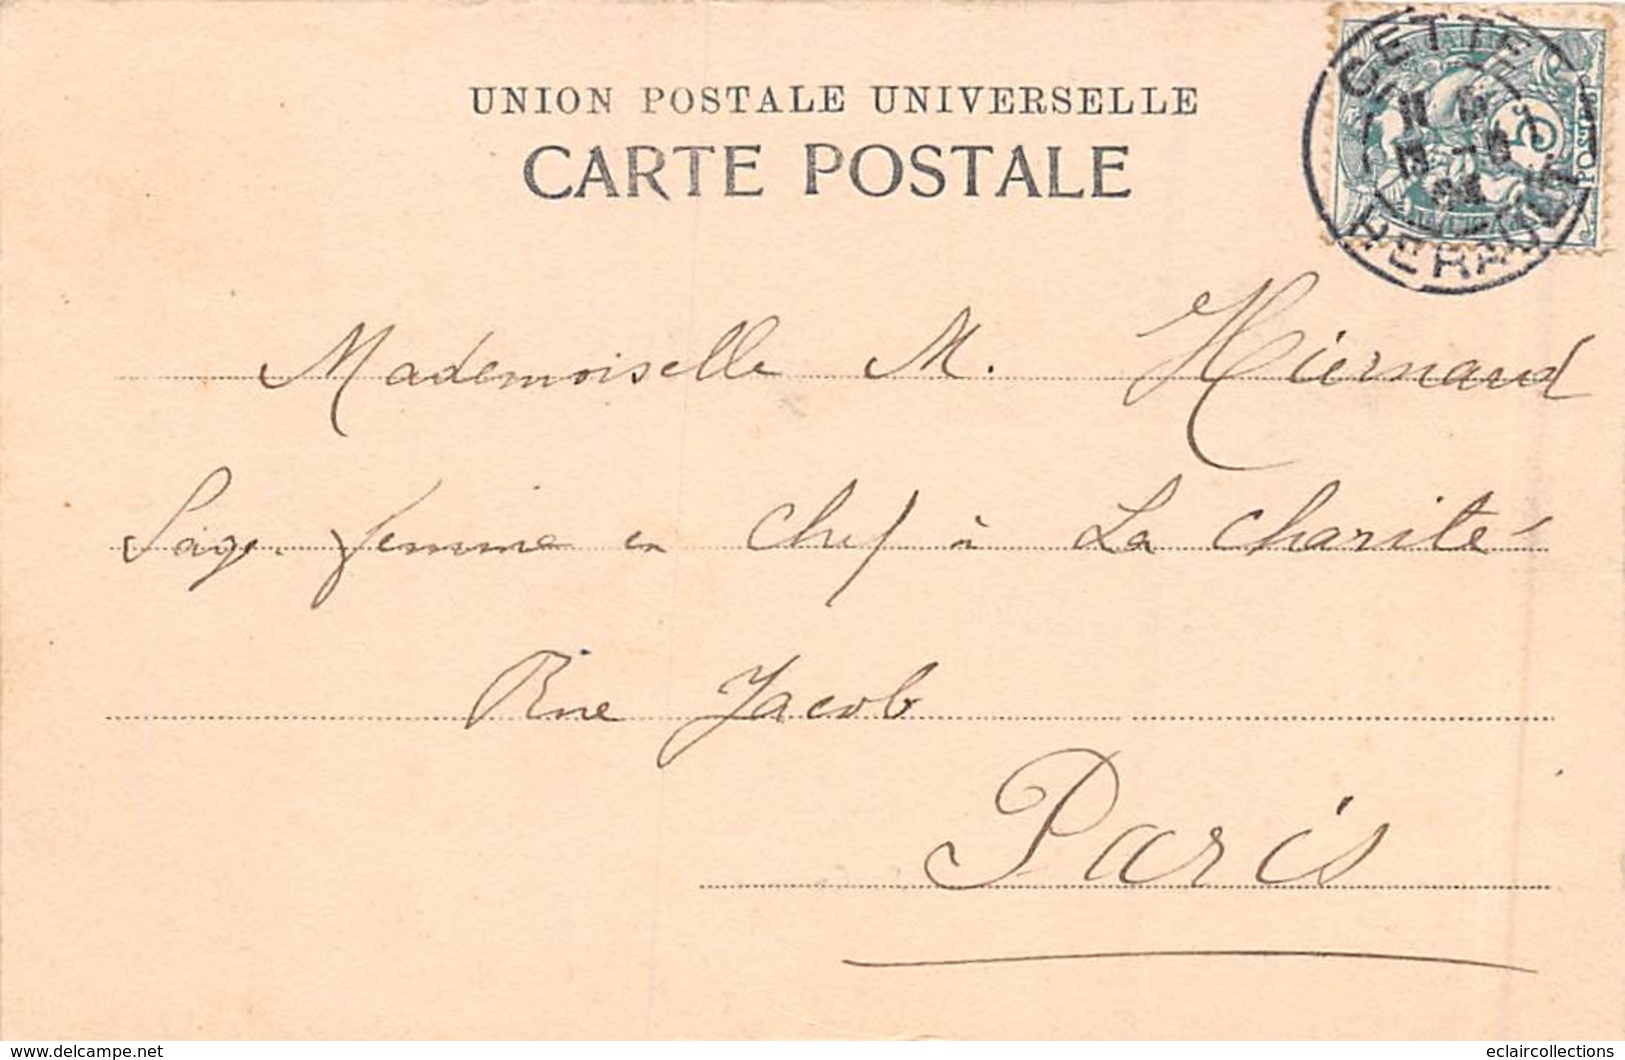 UNION POSTALE UNIVERSELLE
CARTE POSTALE
CETTE
5
POSTES
HERAULT
Mademoiselle M. Hiernaud
Sage-femme en Chef à La Charité
Rue Jacob
Paris
www.delcampe.net
eclaircollections